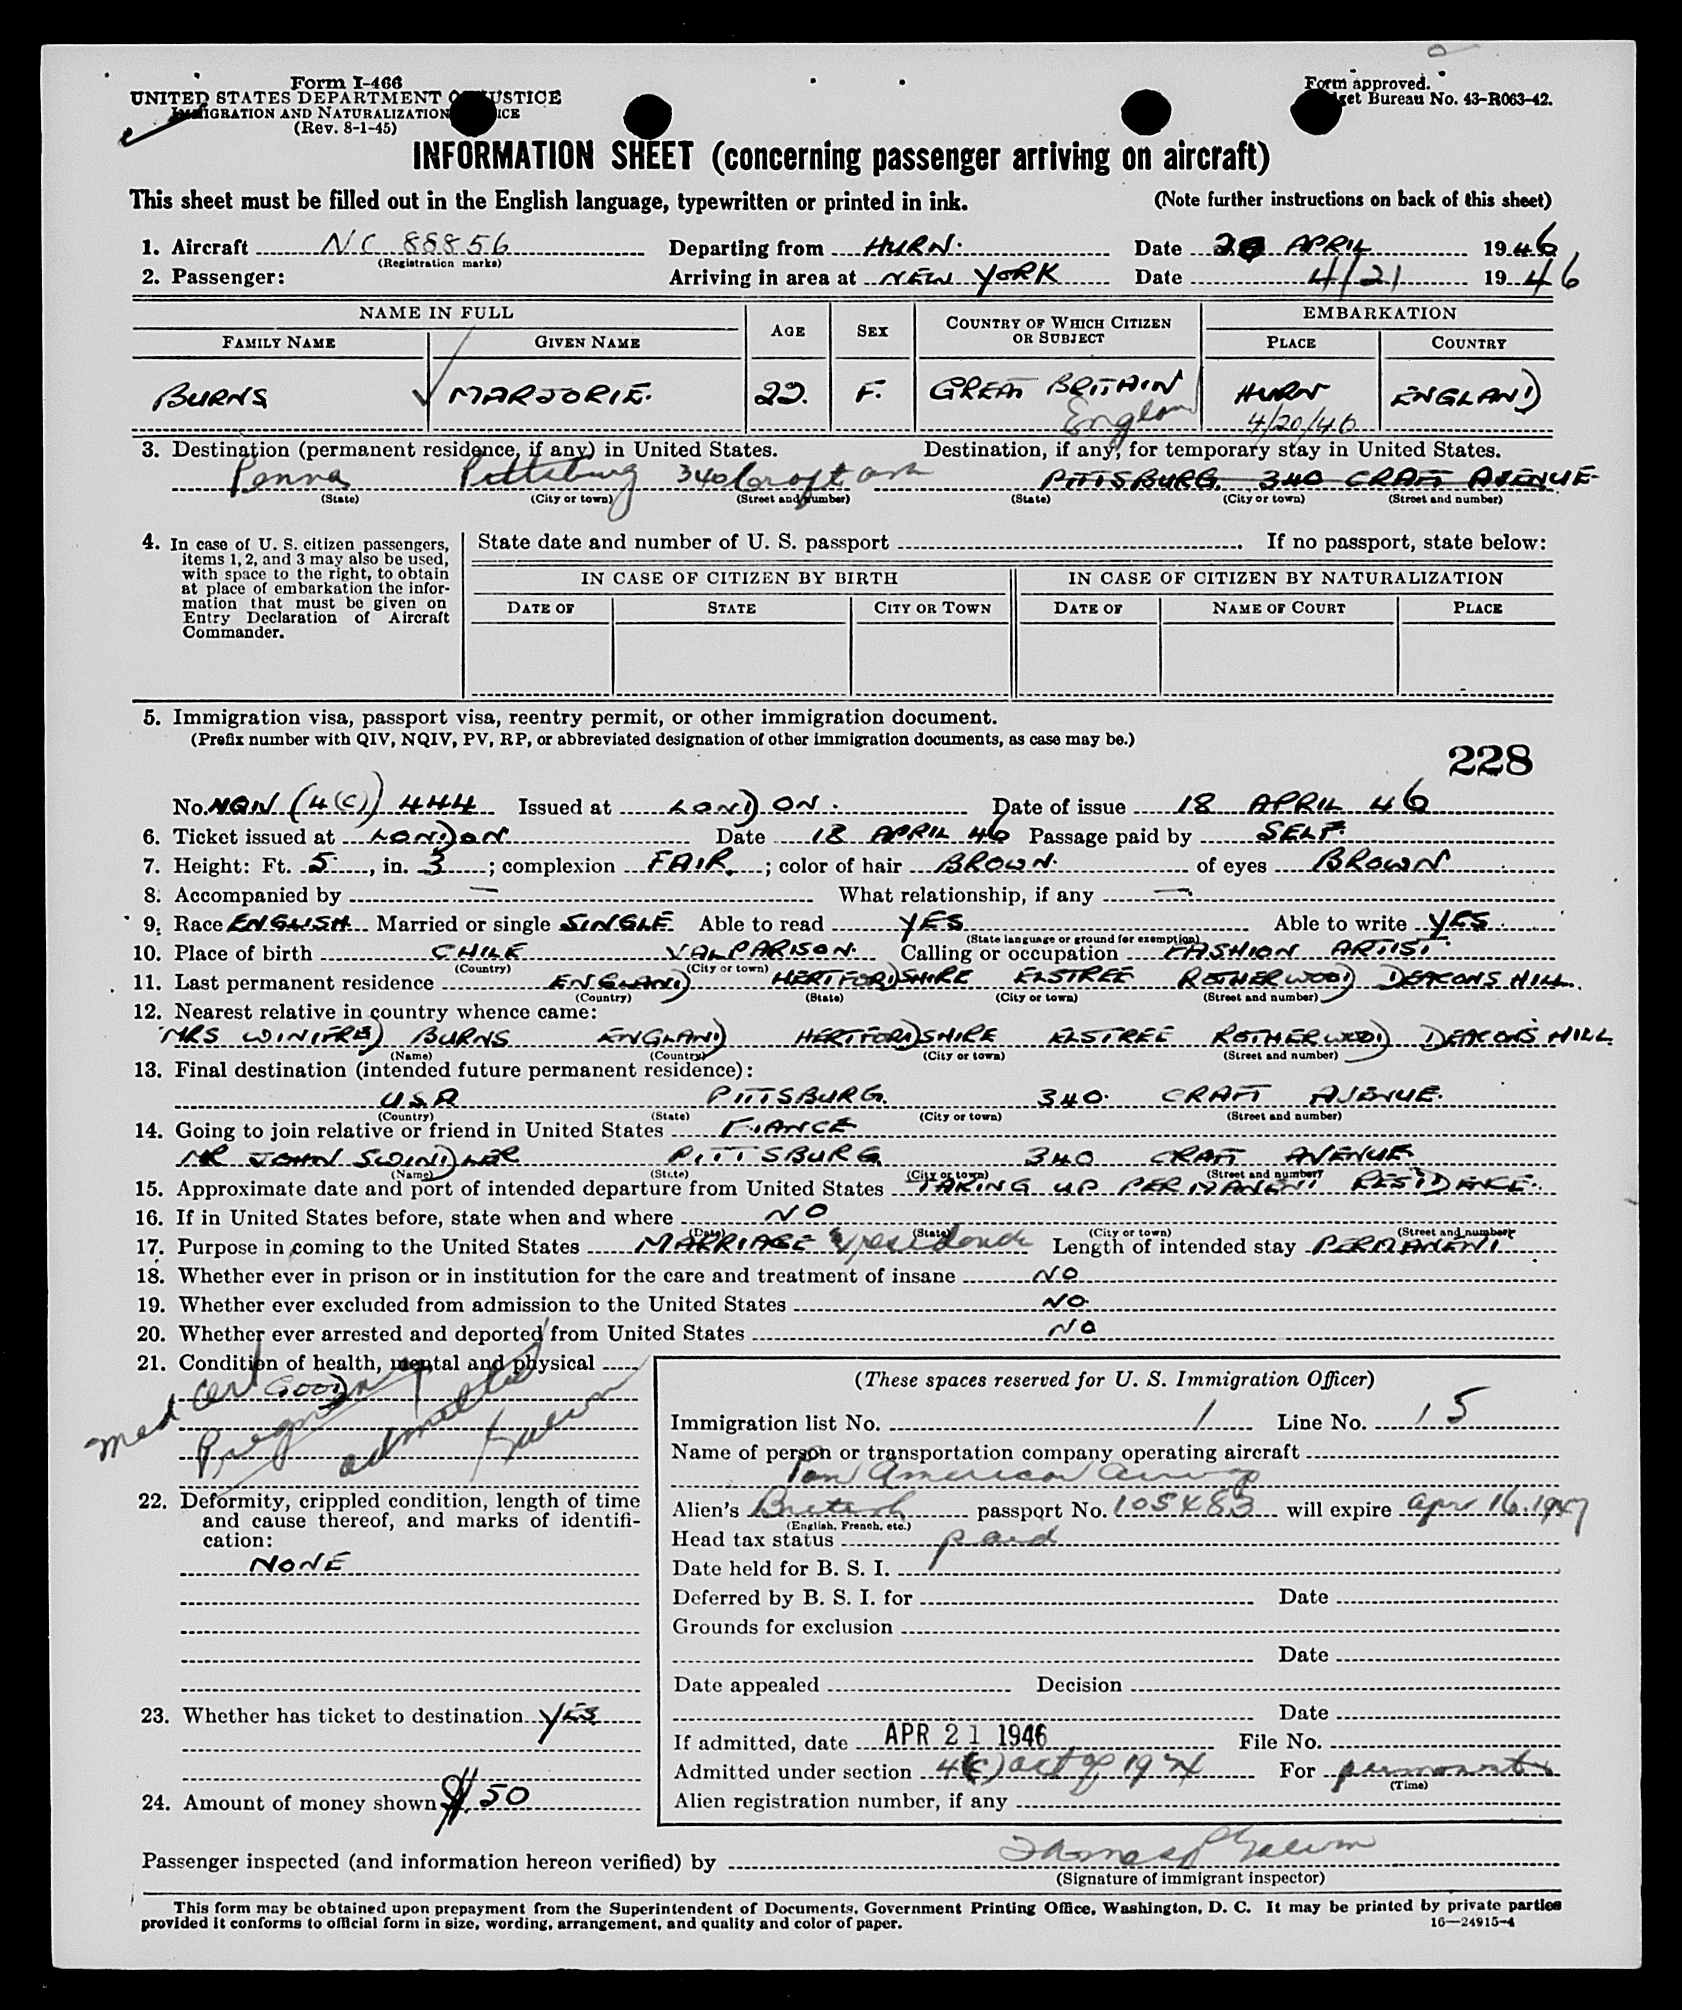 Form I-466
UNITED STATES DEPARTMENT OF JUSTICE
IMMIGRATION AND NATURALIZATION SERVICE
(Rev. 8-1-45)
Form approved.
Budget Bureau No. 43-R063-42.
INFORMATION SHEET (concerning passenger arriving on aircraft)
This sheet must be filled out in the English language, typewritten or printed in ink. (Note further instructions on back of this sheet)
1. Aircraft NC 88856 Departing from HURN. Date 20 APRIL 1946
(Registration marks)
2. Passenger: Arriving in area at NEW YORK Date 4/21 1946
NAME IN FULL AGE SEX COUNTRY OF WHICH CITIZEN OR SUBJECT EMBARKATION
FAMILY NAME GIVEN NAME PLACE COUNTRY
BURNS MARJORIE. 22. F. GREAT BRITAIN HURN ENGLAND
England 4/20/46
3. Destination (permanent residence, if any) in United States. Destination, if any, for temporary stay in United States.
Penna Pittsburg 340 Craft ave PITTSBURG. 340 CRAFT AVENUE
(State) (City or town) (Street and number) (State) (City or town) (Street and number)
4. In case of U. S. citizen passengers, items 1, 2, and 3 may also be used, with space to the right, to obtain at place of embarkation the information that must be given on Entry Declaration of Aircraft Commander.
State date and number of U. S. passport . If no passport, state below:
IN CASE OF CITIZEN BY BIRTH IN CASE OF CITIZEN BY NATURALIZATION
DATE OF STATE CITY OR TOWN DATE OF NAME OF COURT PLACE
5. Immigration visa, passport visa, reentry permit, or other immigration document.
(Prefix number with QIV, NQIV, PV, RP, or abbreviated designation of other immigration documents, as case may be.)
228
No. NQIV (4(C)) 444 Issued at LONDON. Date of issue 18 APRIL 46
6. Ticket issued at LONDON Date 18 APRIL 46 Passage paid by SELF.
7. Height: Ft. 5, in. 3; complexion FAIR.; color of hair BROWN. of eyes BROWN
8. Accompanied by — What relationship, if any —
9. Race ENGLISH. Married or single SINGLE Able to read YES Able to write YES
(State language or ground for exemption)
10. Place of birth CHILE VALPARISON. Calling or occupation FASHION ARTIST
(Country) (City or town)
11. Last permanent residence ENGLAND HERTFORDSHIRE ELSTREE ROTHERWOOD DEACONS HILL.
(Country) (State) (City or town) (Street and number)
12. Nearest relative in country whence came:
MRS WINIFRED BURNS ENGLAND HERTFORDSHIRE ELSTREE ROTHERWOOD DEACONS HILL
(Name) (Country) (City or town) (Street and number)
13. Final destination (intended future permanent residence):
USA PITTSBURG. 340. CRAFT AVENUE.
(Country) (State) (City or town) (Street and number)
14. Going to join relative or friend in United States FIANCE
MR JOHN SWINDLER PITTSBURG 340 CRAFT AVENUE
(Name) (State) (City or town) (Street and number)
15. Approximate date and port of intended departure from United States TAKING UP PERMANENT RESIDENCE.
16. If in United States before, state when and where NO
(Date) (State) (City or town) (Street and number)
17. Purpose in coming to the United States MARRIAGE & residence Length of intended stay PERMANENT
18. Whether ever in prison or in institution for the care and treatment of insane NO
19. Whether ever excluded from admission to the United States NO.
20. Whether ever arrested and deported from United States NO
21. Condition of health, mental and physical
GOOD
med cert
Pregnancy
admitted
Galvin
22. Deformity, crippled condition, length of time and cause thereof, and marks of identification:
NONE
23. Whether has ticket to destination YES
24. Amount of money shown $50
(These spaces reserved for U. S. Immigration Officer)
Immigration list No. 1 Line No. 15
Name of person or transportation company operating aircraft
Pan American Airways
Alien's British passport No. 105483 will expire Apr 16. 1947
(English, French, etc.)
Head tax status paid
Date held for B. S. I.
Deferred by B. S. I. for Date
Grounds for exclusion
Date
Date appealed Decision
Date
If admitted, date APR 21 1946 File No.
Admitted under section 4(c) act of 1924 For permanent
(Time)
Alien registration number, if any
Passenger inspected (and information hereon verified) by Thomas P Galvin
(Signature of immigrant inspector)
This form may be obtained upon prepayment from the Superintendent of Documents, Government Printing Office, Washington, D. C. It may be printed by private parties
provided it conforms to official form in size, wording, arrangement, and quality and color of paper.
16—24915-4